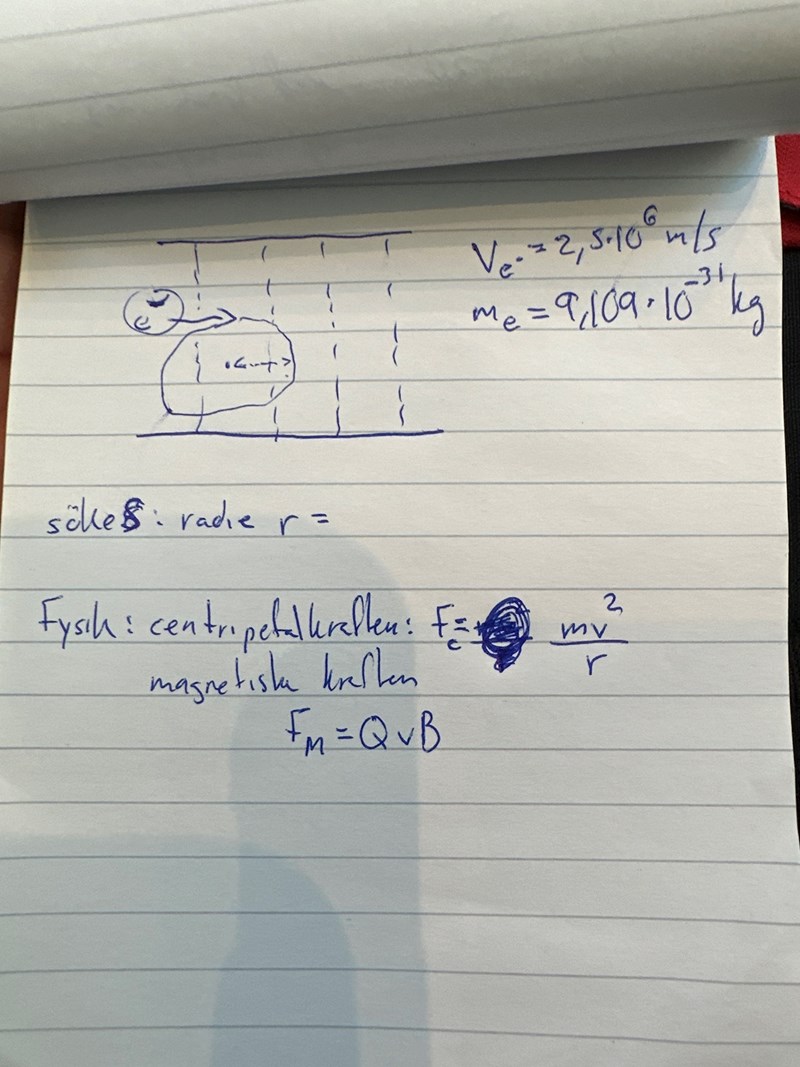 e⁻
Vₑ- = 2,5·10⁶ m/s
mₑ = 9,109·10⁻³¹ kg
sökes: radie r =
Fysik: centripetalkraften: Fc = mv²/r
magnetiska kraften
F_M = QvB